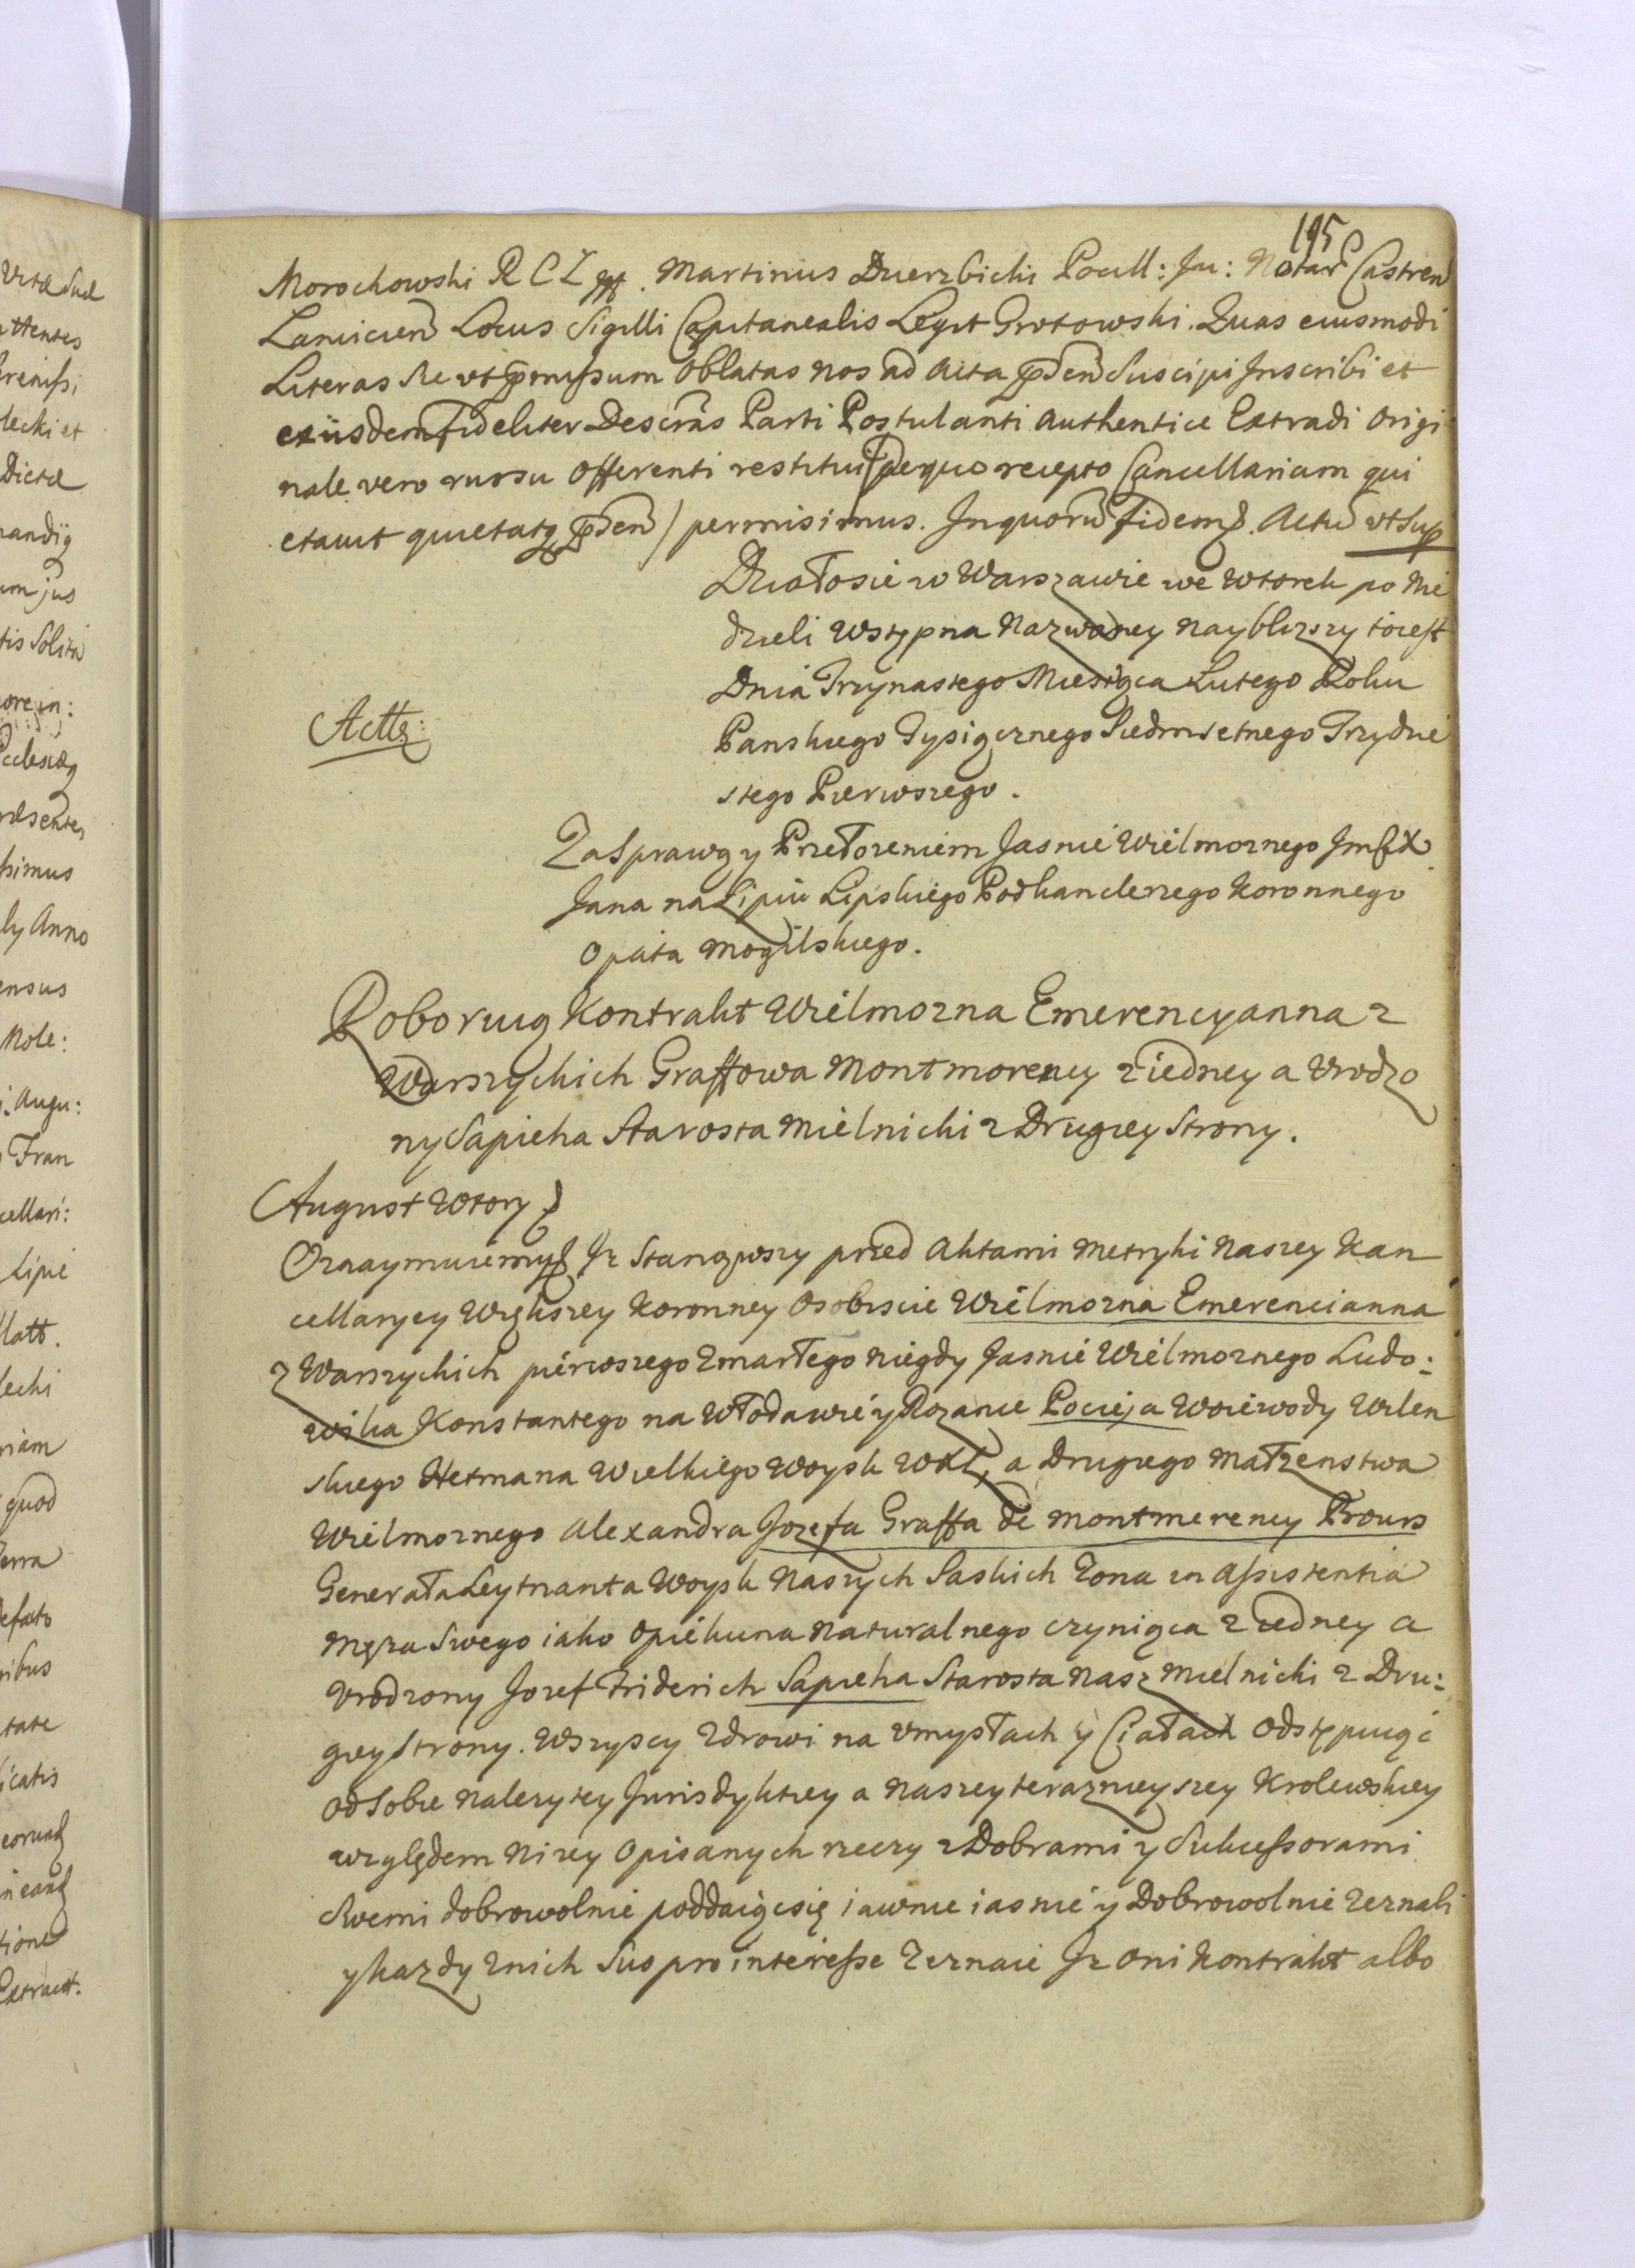 195
Morochowski R C Z mp. Martinus Dzierzbicki Pocill: Ju: Notar Castren
Lancicien Locus Sigilli Capitanealis Legit Grotowski. Quas eiusmodi
Literas Sic vt pmissum Oblatas nos ad Acta psen Suscipi Inscribi et
exiisdem fideliter Descras Parti Postulanti Authentice Extradi Origi
nale vero rursu Offerenti restitui (de quo recepto Cancellariam qui
etavit quietatq psen) permisimus. In quorū fidem. Actū vt Sup
Działosie w Warszawie we Wtorek po Nie
dzieli Wstępna Nazwaney Naybliższy toiest
Dnia Trzynastego Miesiąca Lutego Roku
Panskiego Tysiącznego Siedmsetnego Trzydzie
stego Pierwszego.
Actt:
Za Sprawą y Przełozeniem Jasnie Wielmoznego Jmſſ X
Jana na Lipiu Lipskiego Podkanclerzego Koronnego
Opata Mogilskiego.
Roboruią Kontrakt Wielmozna Emerencyanna z
Warszyckich Graffowa Montmorency z iedney a Vrodzo
ny Sapieha Starosta Mielnicki z Drugiey Strony.
August Wtory
Oznaymuiemy Iz Stanąwszy przed Aktami Metryki Naszey Kan
cellaryey Większey Koronney Osobiscie Wielmozna Emerencianna
z Warszyckich pierwszego Zmarłego niegdy Jasnie Wielmoznego Ludo:
wika Konstantego na Włodawie y Rozance Pocieja Woiewody Wilen
skiego Hetmana Wielkiego Woysk WXL, a Drugiego Małzenstwa
Wielmoznego Alexandra Jozefa Graffa de Montmerency Brours
Generała Leytnanta Woysk Naszych Saskich Zona in Assistentia
Męza Swego iako Opiekuna Naturalnego czyniąca z iedney a
Vrodzony Jozef Friderich Sapieha Starosta Nasz Mielnicki z Dru:
giey Strony. Wszyscy Zdrowi na Vmysłach y Ciałach Odstępuiąc
od Sobie Nalezytey Jurisdyktiey a Naszey teraznieyszey Krolewskiey
względem Nizey Opisanych rzeczy z Dobrami y Sukcessorami
Swemi dobrowolnie poddaiącsię iawnie iasnie y Dobrowolnie Zeznali
y kazdy z nich Suo pro interesse Zeznaie Iz oni Kontrakt albo